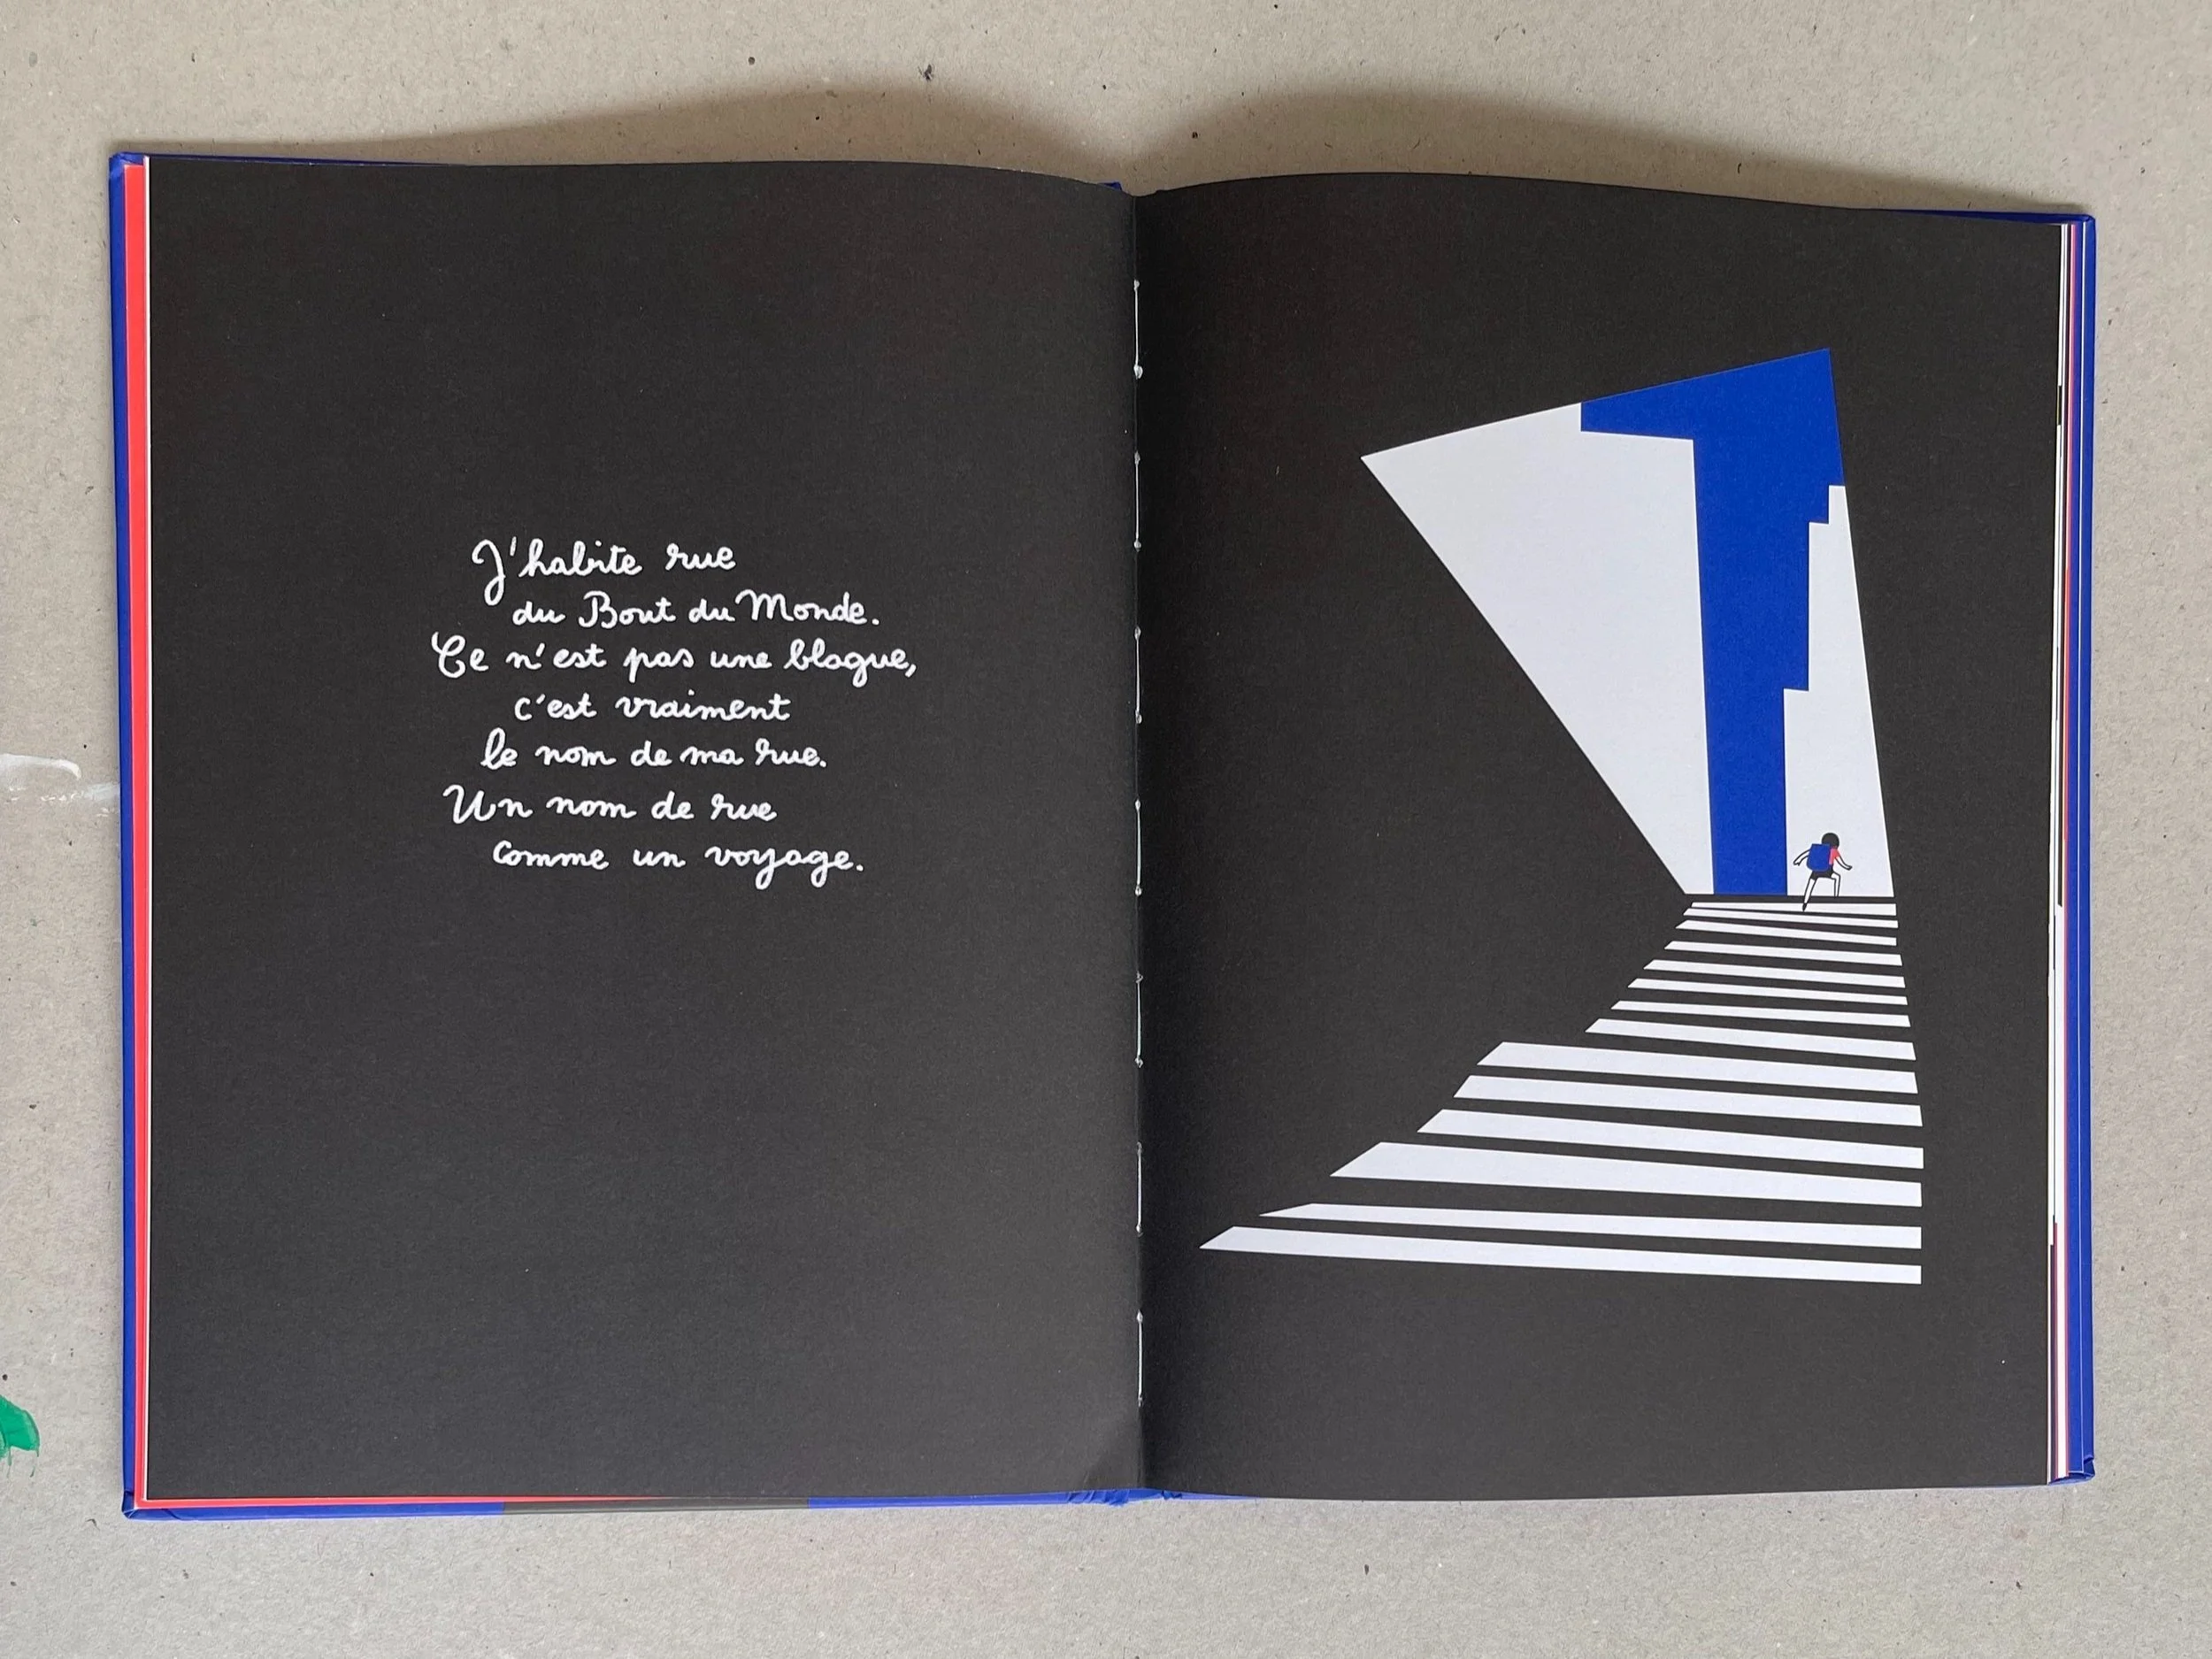 J'habite rue
du Bout du Monde.
Ce n'est pas une blague,
c'est vraiment
le nom de ma rue.
Un nom de rue
comme un voyage.